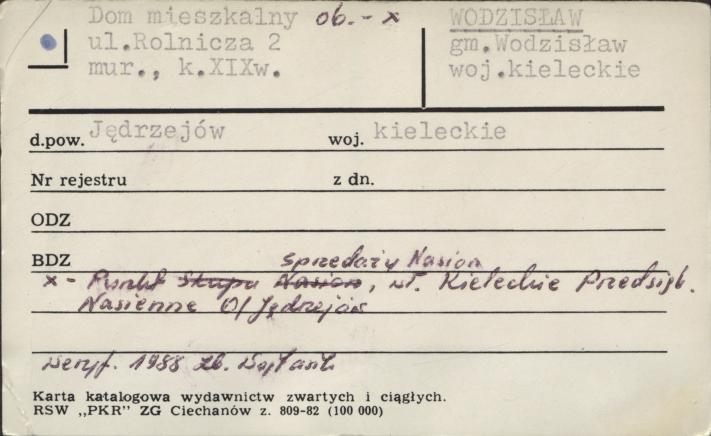 Dom mieszkalny ob.- x
ul.Rolnicza 2
mur., k.XIXw.
WODZISŁAW
gm.Wodzisław
woj.kieleckie
d.pow. Jędrzejów woj. kieleckie
Nr rejestru z dn.
ODZ
BDZ
sprzedaży Nasion
x - Punkt Skupu Nasion, wł. Kieleckie Przedsięb.
Nasienne O/Jędrzejów
weryf. 1988
Karta katalogowa wydawnictw zwartych i ciągłych.
RSW „PKR” ZG Ciechanów z. 809-82 (100 000)